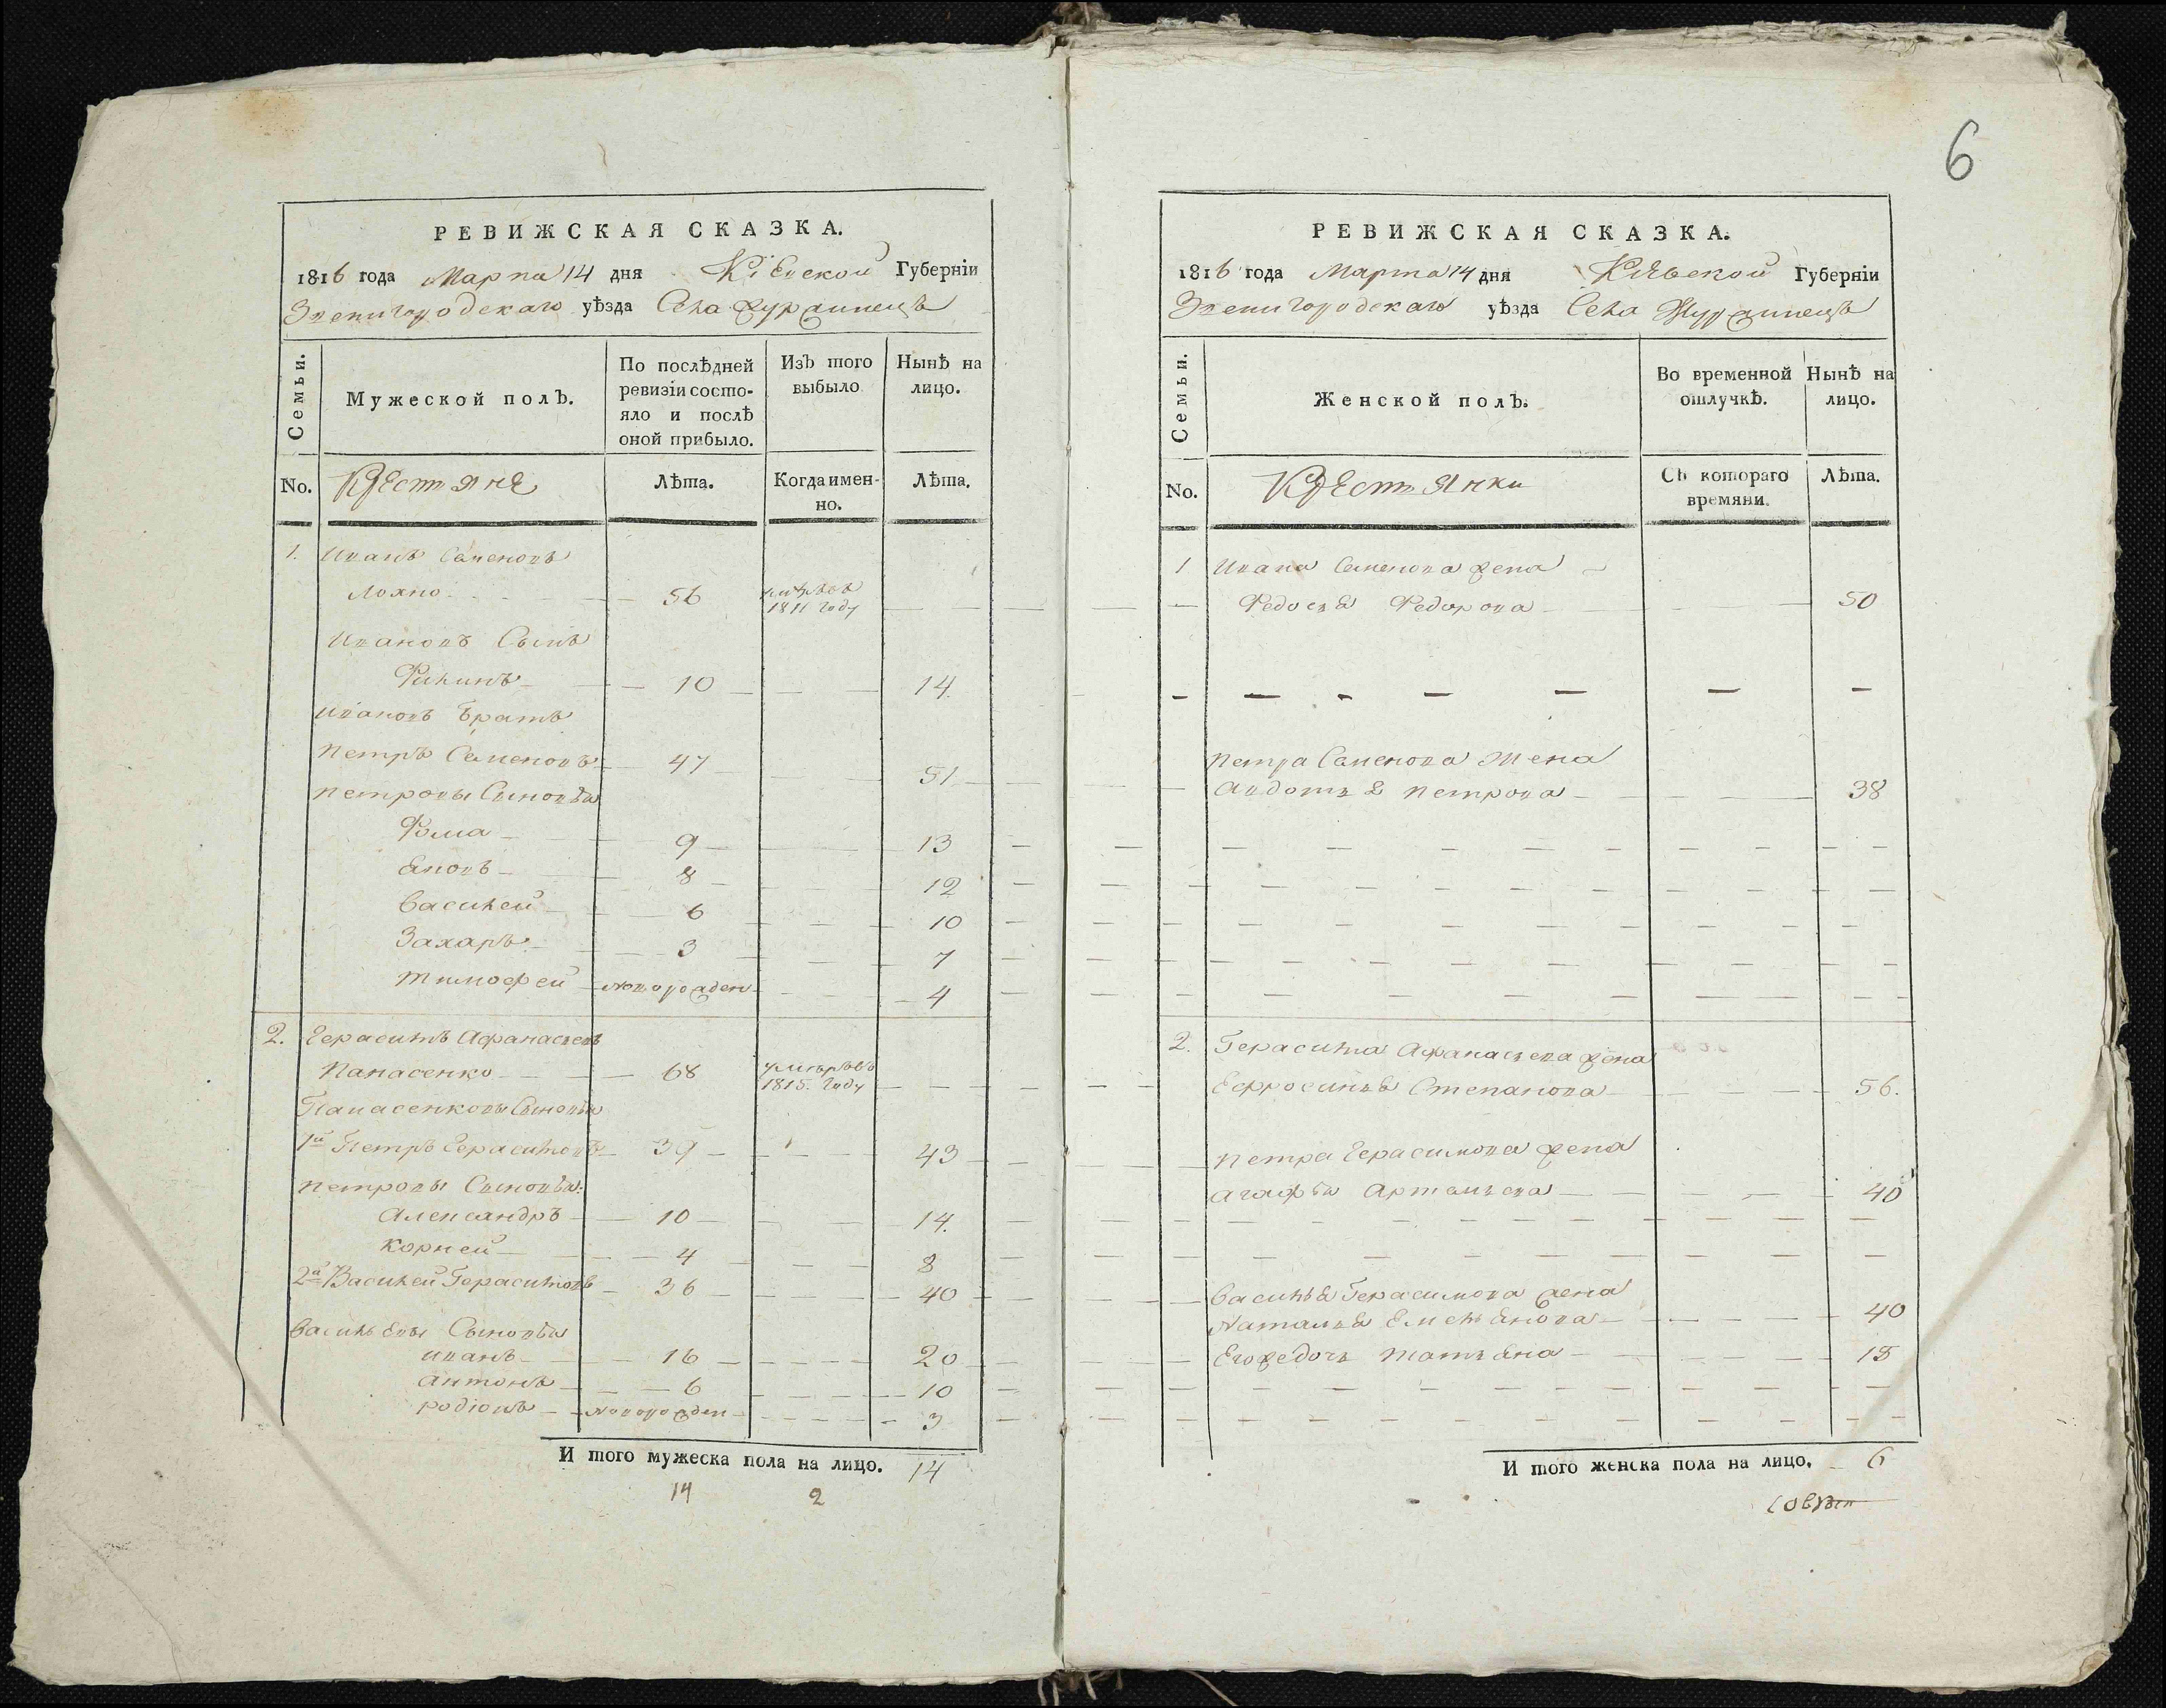 6
РЕВИЖСКАЯ СКАЗКА.
1816 года Марта 14 дня Кіевской Губерніи
Звенигородскаго уѣзда Села Журжинецъ
Семьи.
Мужеской полъ.
По послѣдней ревизіи состо-
яло и послѣ
оной прибыло.
Изъ того
выбыло
Нынѣ на
лицо.
No. Крестьяне Лѣта. Когда имен-
но. Лѣта.
1. Иванъ Семеновъ
Лохно 56 умѣръ въ 1811 году
Ивановъ Сынъ
Филипъ 10 14.
Ивановъ братъ
Петръ Семеновъ 47 51
Петровы Сыновья
Фома 9 13
Яковъ 8 12
Василей 6 10
Захаръ 3 7
Тимофей новорожден 4
2. Герасимъ Афанасьевъ
Панасенко 68 умѣръ въ 1815. году
Панасенковы Сыновья
1й Петръ Герасимовъ 39 43
Петровы Сыновья:
Александръ 10 14.
Корней 4 8
2й Василей Герасимовъ 36 40
Васильевы Сыновья
Иванъ 16 20
Антонъ 6 10
Родіонъ новорожден 3
И того мужеска пола на лицо. 14
14 2
РЕВИЖСКАЯ СКАЗКА.
1816 года Марта 14 дня Кіевской Губерніи
Звенигородскаго уѣзда Села Журжинецъ
Семьи.
Женской полъ.
Во временной
отлучкѣ.
Нынѣ на
лицо.
No. Крестьянки Съ котораго
времяни. Лѣта.
1 Ивана Семенова жена
Федосья Федорова 50
Петра Семенова жена
Авдотья Петрова 38
2. Герасима Афанасьева жена
Ефросинья Степанова 56.
Петра Герасимова жена
Агафья Артемьева 40
Василья Герасимова жена
Наталья Емельянова 40
Его ж дочь Татьяна 18
И того женска пола на лицо. 6